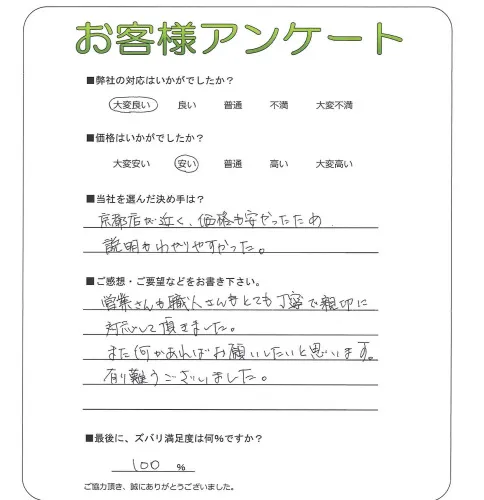 お客様アンケート
■弊社の対応はいかがでしたか？
大変良い 良い 普通 不満 大変不満
■価格はいかがでしたか？
大変安い 安い 普通 高い 大変高い
■当社を選んだ決め手は？
京都店が近く、価格も安かったため
説明もわかりやすかった。
■ご感想・ご要望などをお書き下さい。
営業さんも職人さんもとても丁寧で親切に
対応して頂きました。
また何かあればお願いしたいと思います。
有り難うございました。
■最後に、ズバリ満足度は何%ですか？
100 %
ご協力頂き、誠にありがとうございました。